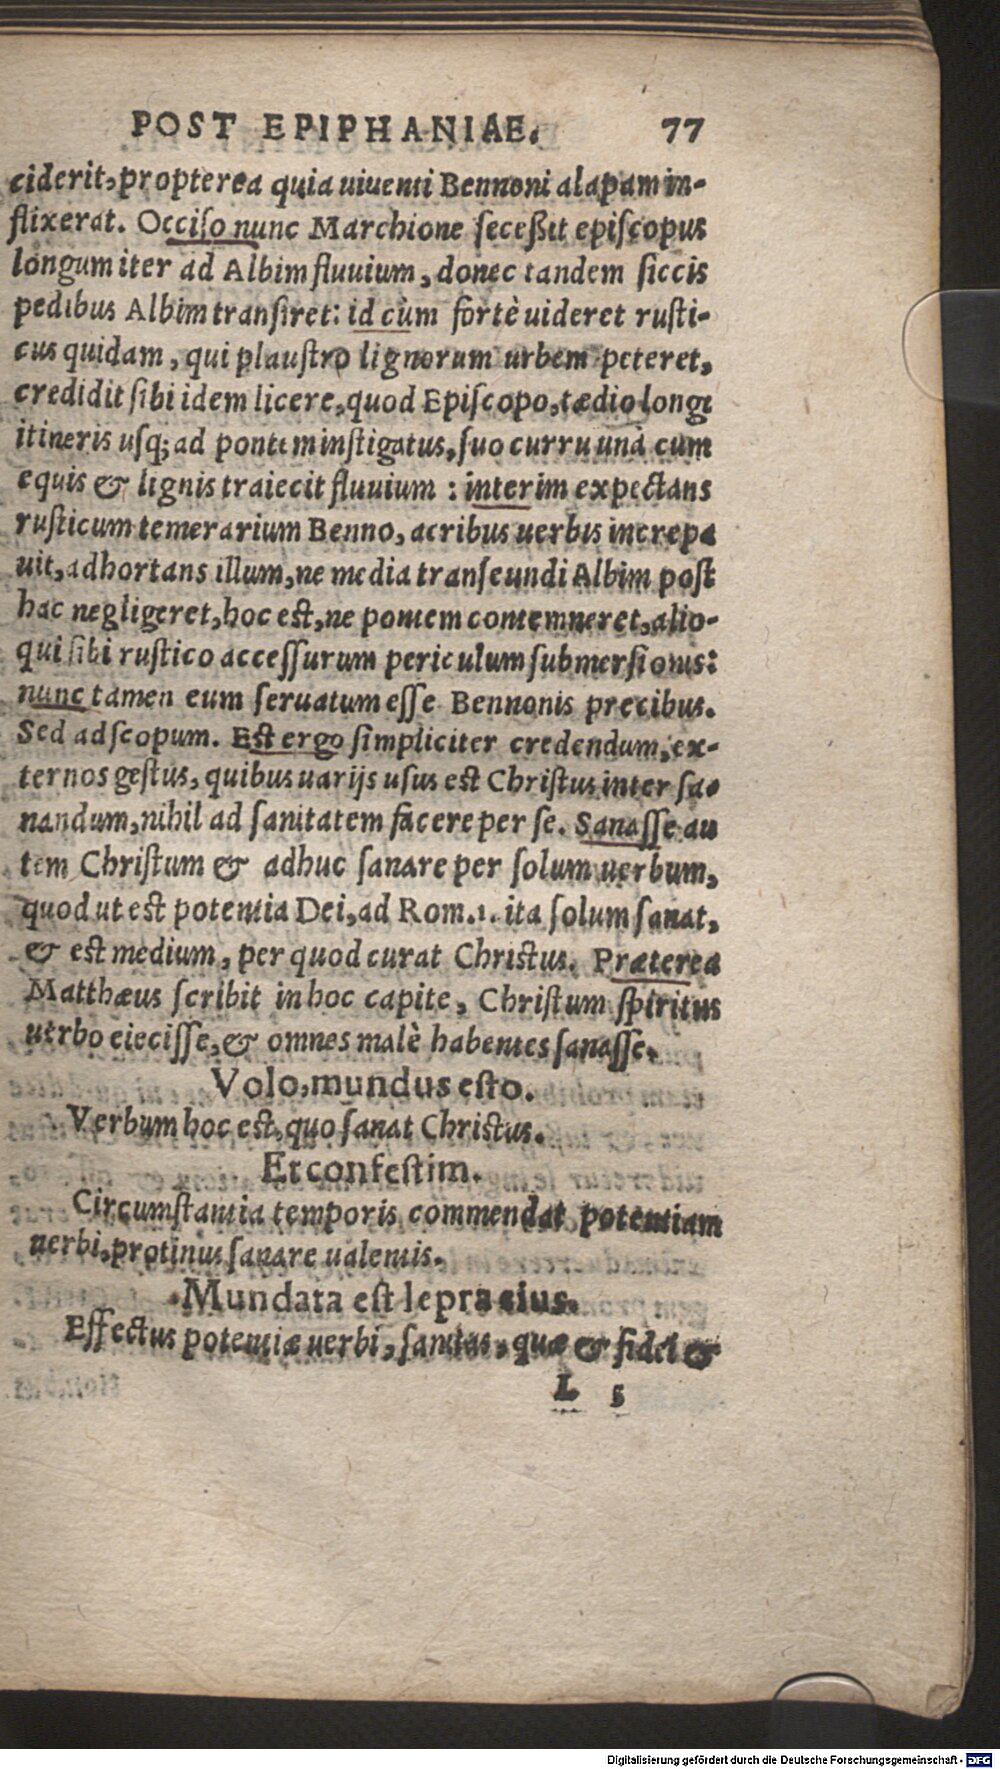 POST EPIPHANIAE. 77
ciderit, propterea quia uiuenti Bennoni alapam in-
flixerat. Occiſo nunc Marchione ſeceßit epiſcopus
longum iter ad Albim fluuium, donec tandem ſiccis
pedibus Albim tranſiret: id cùm fortè uideret ruſti-
cus quidam, qui plauſtro lignorum urbem peteret,
credidit ſibi idem licere, quod Epiſcopo, tædio longi
itineris uſq; ad pontem inſtigatus, ſuo curru unà cum
equis & lignis traiecit fluuium : interim expectans
ruſticum temerarium Benno, acribus uerbis increpa
uit, adhortans illum, ne media tranſeundi Albim poſt
hac negligeret, hoc eſt, ne pontem contemneret, alio-
qui ſibi ruſtico acceſſurum periculum ſubmerſionis:
nunc tamen eum ſeruatum eſſe Bennonis precibus.
Sed ad ſcopum. Eſt ergo ſimpliciter credendum, ex-
ternos geſtus, quibus uarijs uſus eſt Chriſtus inter ſa-
nandum, nihil ad ſanitatem facere per ſe. Sanaſſe au
tem Chriſtum & adhuc ſanare per ſolum uerbum,
quod ut eſt potentia Dei, ad Rom. 1. ita ſolum ſanat,
& eſt medium, per quod curat Chriſtus. Præterea
Matthæus ſcribit in hoc capite, Chriſtum ſpiritus
uerbo eieciſſe, & omnes malè habentes ſanaſſe.
Volo, mundus eſto.
Verbum hoc eſt, quo ſanat Chriſtus.
Et confeſtim.
Circumſtantia temporis commendat potentiam
uerbi, protinus ſanare ualentis.
Mundata eſt lepra eius.
Effectus potentiæ uerbi, ſanitas, quæ & fidei &
L 5
Digitalisierung gefördert durch die Deutsche Forschungsgemeinschaft - DFG